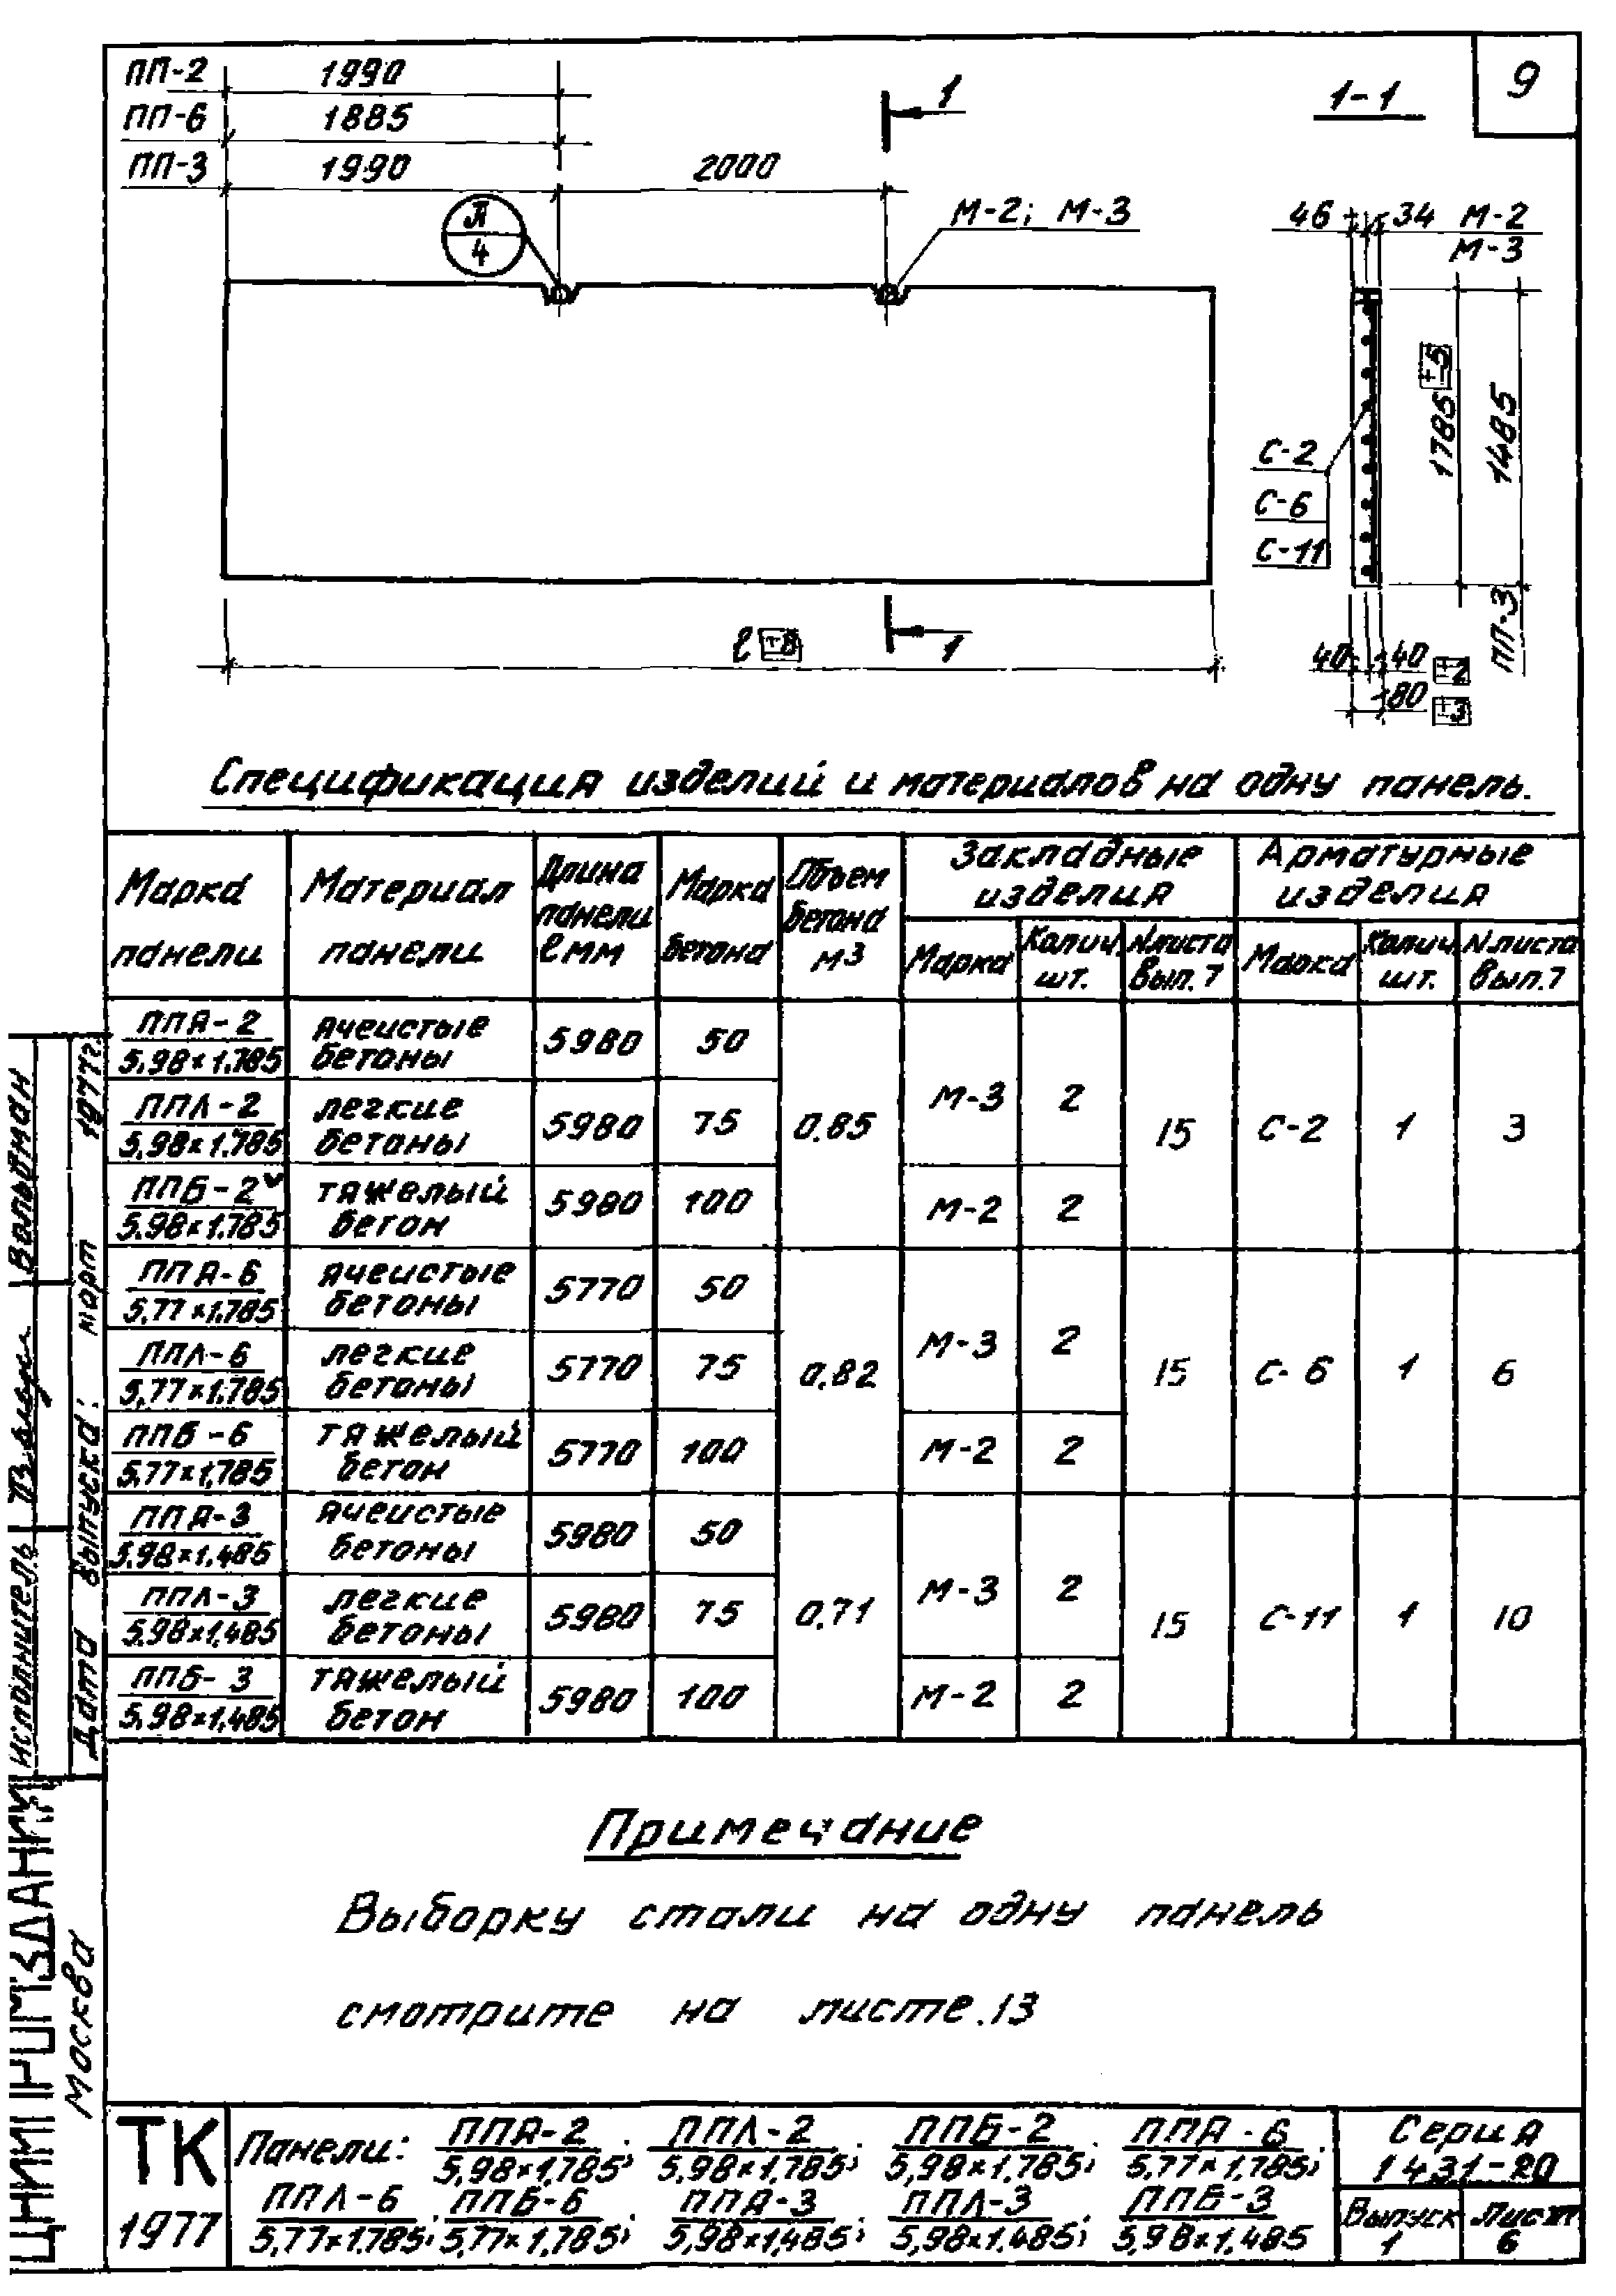 9
ПП-2 1990
ПП-6 1885
ПП-3 1990 2000
1
1-1
Л
4
М-2; М-3
46 34 М-2
М-3
1785 ±5
1485
ПП-3
С-2
С-6
С-11
ℓ ±8
1
40 40 ±2
80 ±3
Спецификация изделий и материалов на одну панель.
Марка панели
Материал панели
Длина панели ℓ мм
Марка бетона
Объем бетона м³
Закладные изделия
Арматурные изделия
Марка
Колич. шт.
N листа вып. 7
Марка
Колич. шт.
N листа вып. 7
ППЯ-2 5.98×1.785 ячеистые бетоны 5980 50
ППЛ-2 5.98×1.785 легкие бетоны 5980 75
ППБ-2 5.98×1.785 тяжелый бетон 5980 100
0.85 М-3 2 М-2 2 15 С-2 1 3
ППЯ-6 5,77×1.785 ячеистые бетоны 5770 50
ППЛ-6 5,77×1.785 легкие бетоны 5770 75
ППБ-6 5,77×1,785 тяжелый бетон 5770 100
0.82 М-3 2 М-2 2 15 С-6 1 6
ППЯ-3 5.98×1.485 ячеистые бетоны 5980 50
ППЛ-3 5.98×1,485 легкие бетоны 5980 75
ППБ-3 5,98×1,485 тяжелый бетон 5980 100
0.71 М-3 2 М-2 2 15 С-11 1 10
Примечание
Выборку стали на одну панель
смотрите на листе.13
ЦНИИПРОМЗДАНИЙ
Москва
исполнитель
Вольфман
Дата выпуска: март 1977г.
ТК
1977
Панели: ППЯ-2 5,98×1,785; ППЛ-2 5,98×1,785; ППБ-2 5,98×1,785; ППЯ-6 5.77×1.785;
ППЛ-6 5,77×1.785; ППБ-6 5,77×1,785; ППЯ-3 5,98×1,485; ППЛ-3 5,98×1.485; ППБ-3 5,98×1,485
Серия
1431-20
Выпуск
1
Лист
6